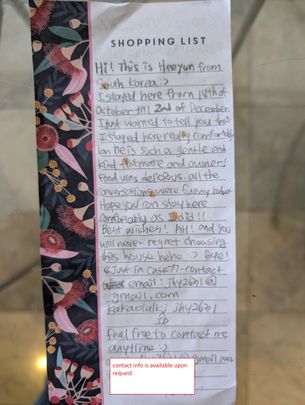 SHOPPING LIST
Hi! This is Heeyun from
South Korea :>
I stayed here from 14th of
October till 2nd of December.
I just wanted to tell you that
I stayed here really comfortably
he is such a gentle and
kind flatmate and owner!
Food was delicious. all the
conversations were funny
Hope you can stay here
comfortably as I did!!
Best wishes! Ah! and you
will never regret choosing
this house hehe :> Bye!
Just in case?? contact
email: jhy2631@
gmail.com
Kakaotalk: jhy2631
feel free to contact me
anytime :>
@gmail.com
contact info is available upon
request